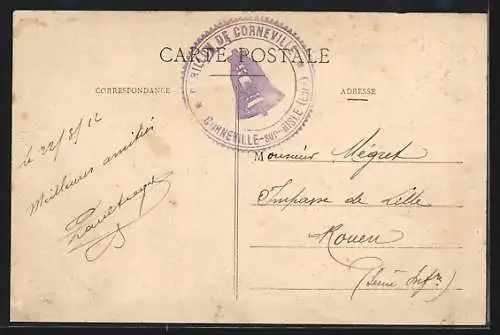 CARTE POSTALE
CARILLON DE CORNEVILLE
CORNEVILLE-sur-RISLE (Eure)
CORRESPONDANCE
ADRESSE
le 22/8/12
Meilleures amitiés
Monsieur Mégret
Impasse de Lille
Rouen
(Seine Infre)